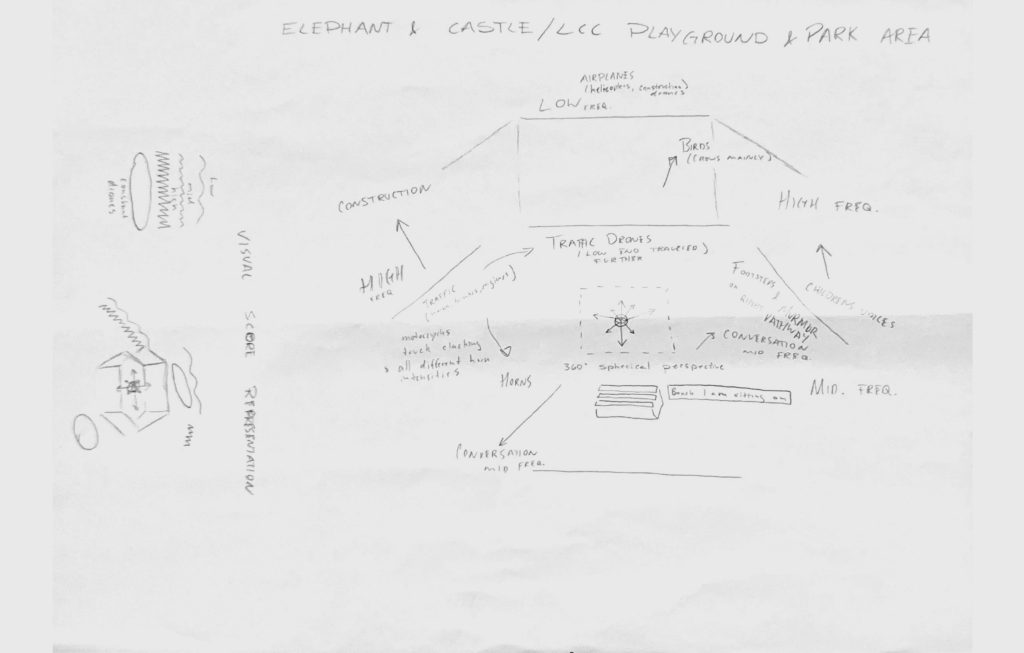 ELEPHANT & CASTLE/LCC PLAYGROUND & PARK AREA
AIRPLANES
(helicopters, construction)
drones
LOW FREQ.
BIRDS
(CROWS MAINLY)
CONSTRUCTION
HIGH FREQ.
HIGH
FREQ
TRAFFIC DRONES
(LOW END TRAVELED)
FURTHER
TRAFFIC
FOOTSTEPS & MURMUR
ON RIGHT
PATHWAY
CHILDRENS VOICES
motorcycles
truck clashing
all different horn
intensities
HORNS
CONVERSATION
MID FREQ.
360° spherical perspective
Bench I am sitting on
MID. FREQ.
CONVERSATION
MID FREQ.
Low
mid
high
constant
drones
VISUAL SCORE REPRESENTATION